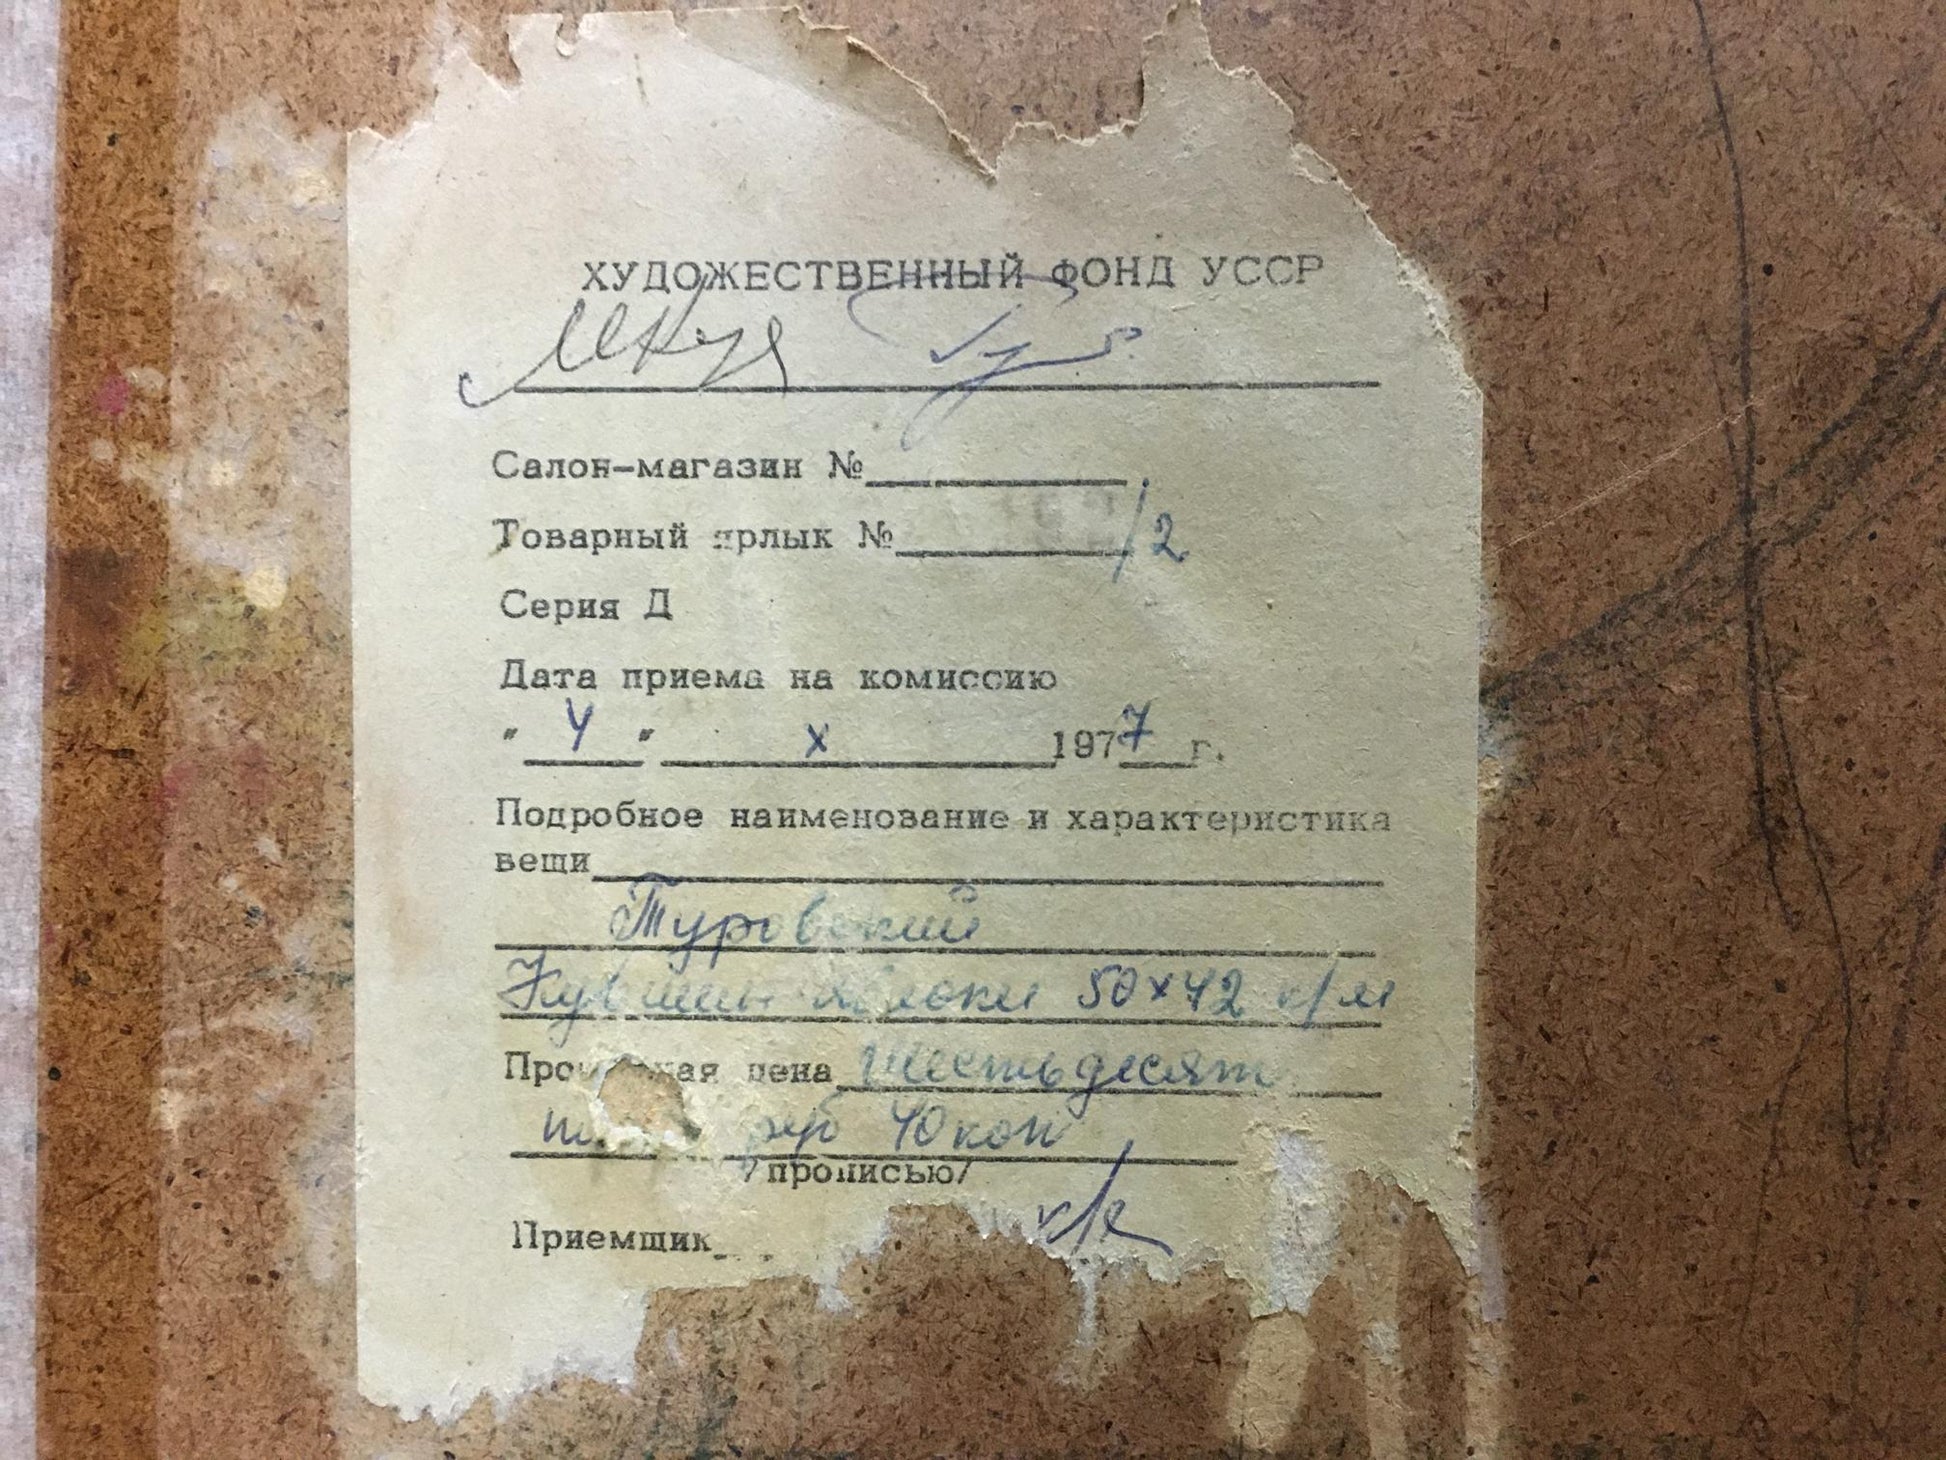 ХУДОЖЕСТВЕННЫЙ ФОНД УССР
Салон-магазин №
Товарный ярлык № /2
Серия Д
Дата приема на комиссию
" 4 " X 1977 г.
Подробное наименование и характеристика
вещи
Туровский
Кувшин яблоки 50х42 к/м
цена Шестьдесят
руб 40 коп
/прописью/
Приемщик